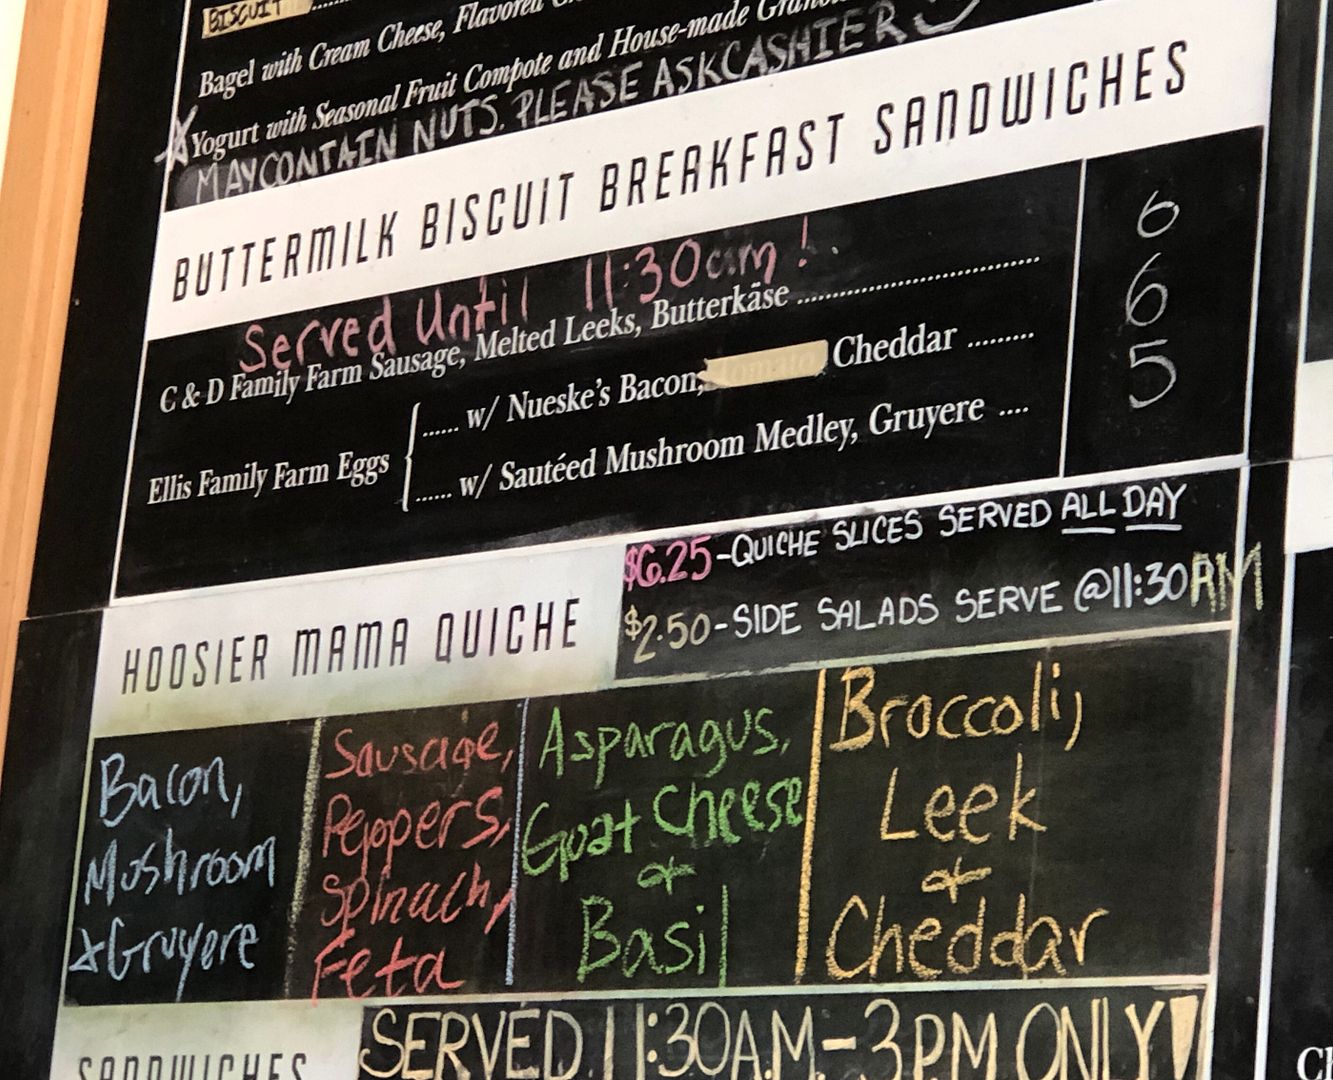 BISCUIT
Bagel with Cream Cheese, Flavored
Yogurt with Seasonal Fruit Compote and House-made
MAY CONTAIN NUTS. PLEASE ASK CASHIER
BUTTERMILK BISCUIT BREAKFAST SANDWICHES
Served Until 11:30am!
C & D Family Farm Sausage, Melted Leeks, Butterkäse .................................... 6
Ellis Family Farm Eggs
...... w/ Nueske's Bacon, Cheddar ......... 6
...... w/ Sautéed Mushroom Medley, Gruyere .... 5
HOOSIER MAMA QUICHE
$6.25-QUICHE SLICES SERVED ALL DAY
$2.50-SIDE SALADS SERVE @11:30AM
Bacon,
Mushroom
+Gruyere
Sausage,
Peppers,
Spinach,
Feta
Asparagus,
Goat Cheese
+
Basil
Broccoli,
Leek
+
Cheddar
SANDWICHES
SERVED 11:30A.M-3PM ONLY!